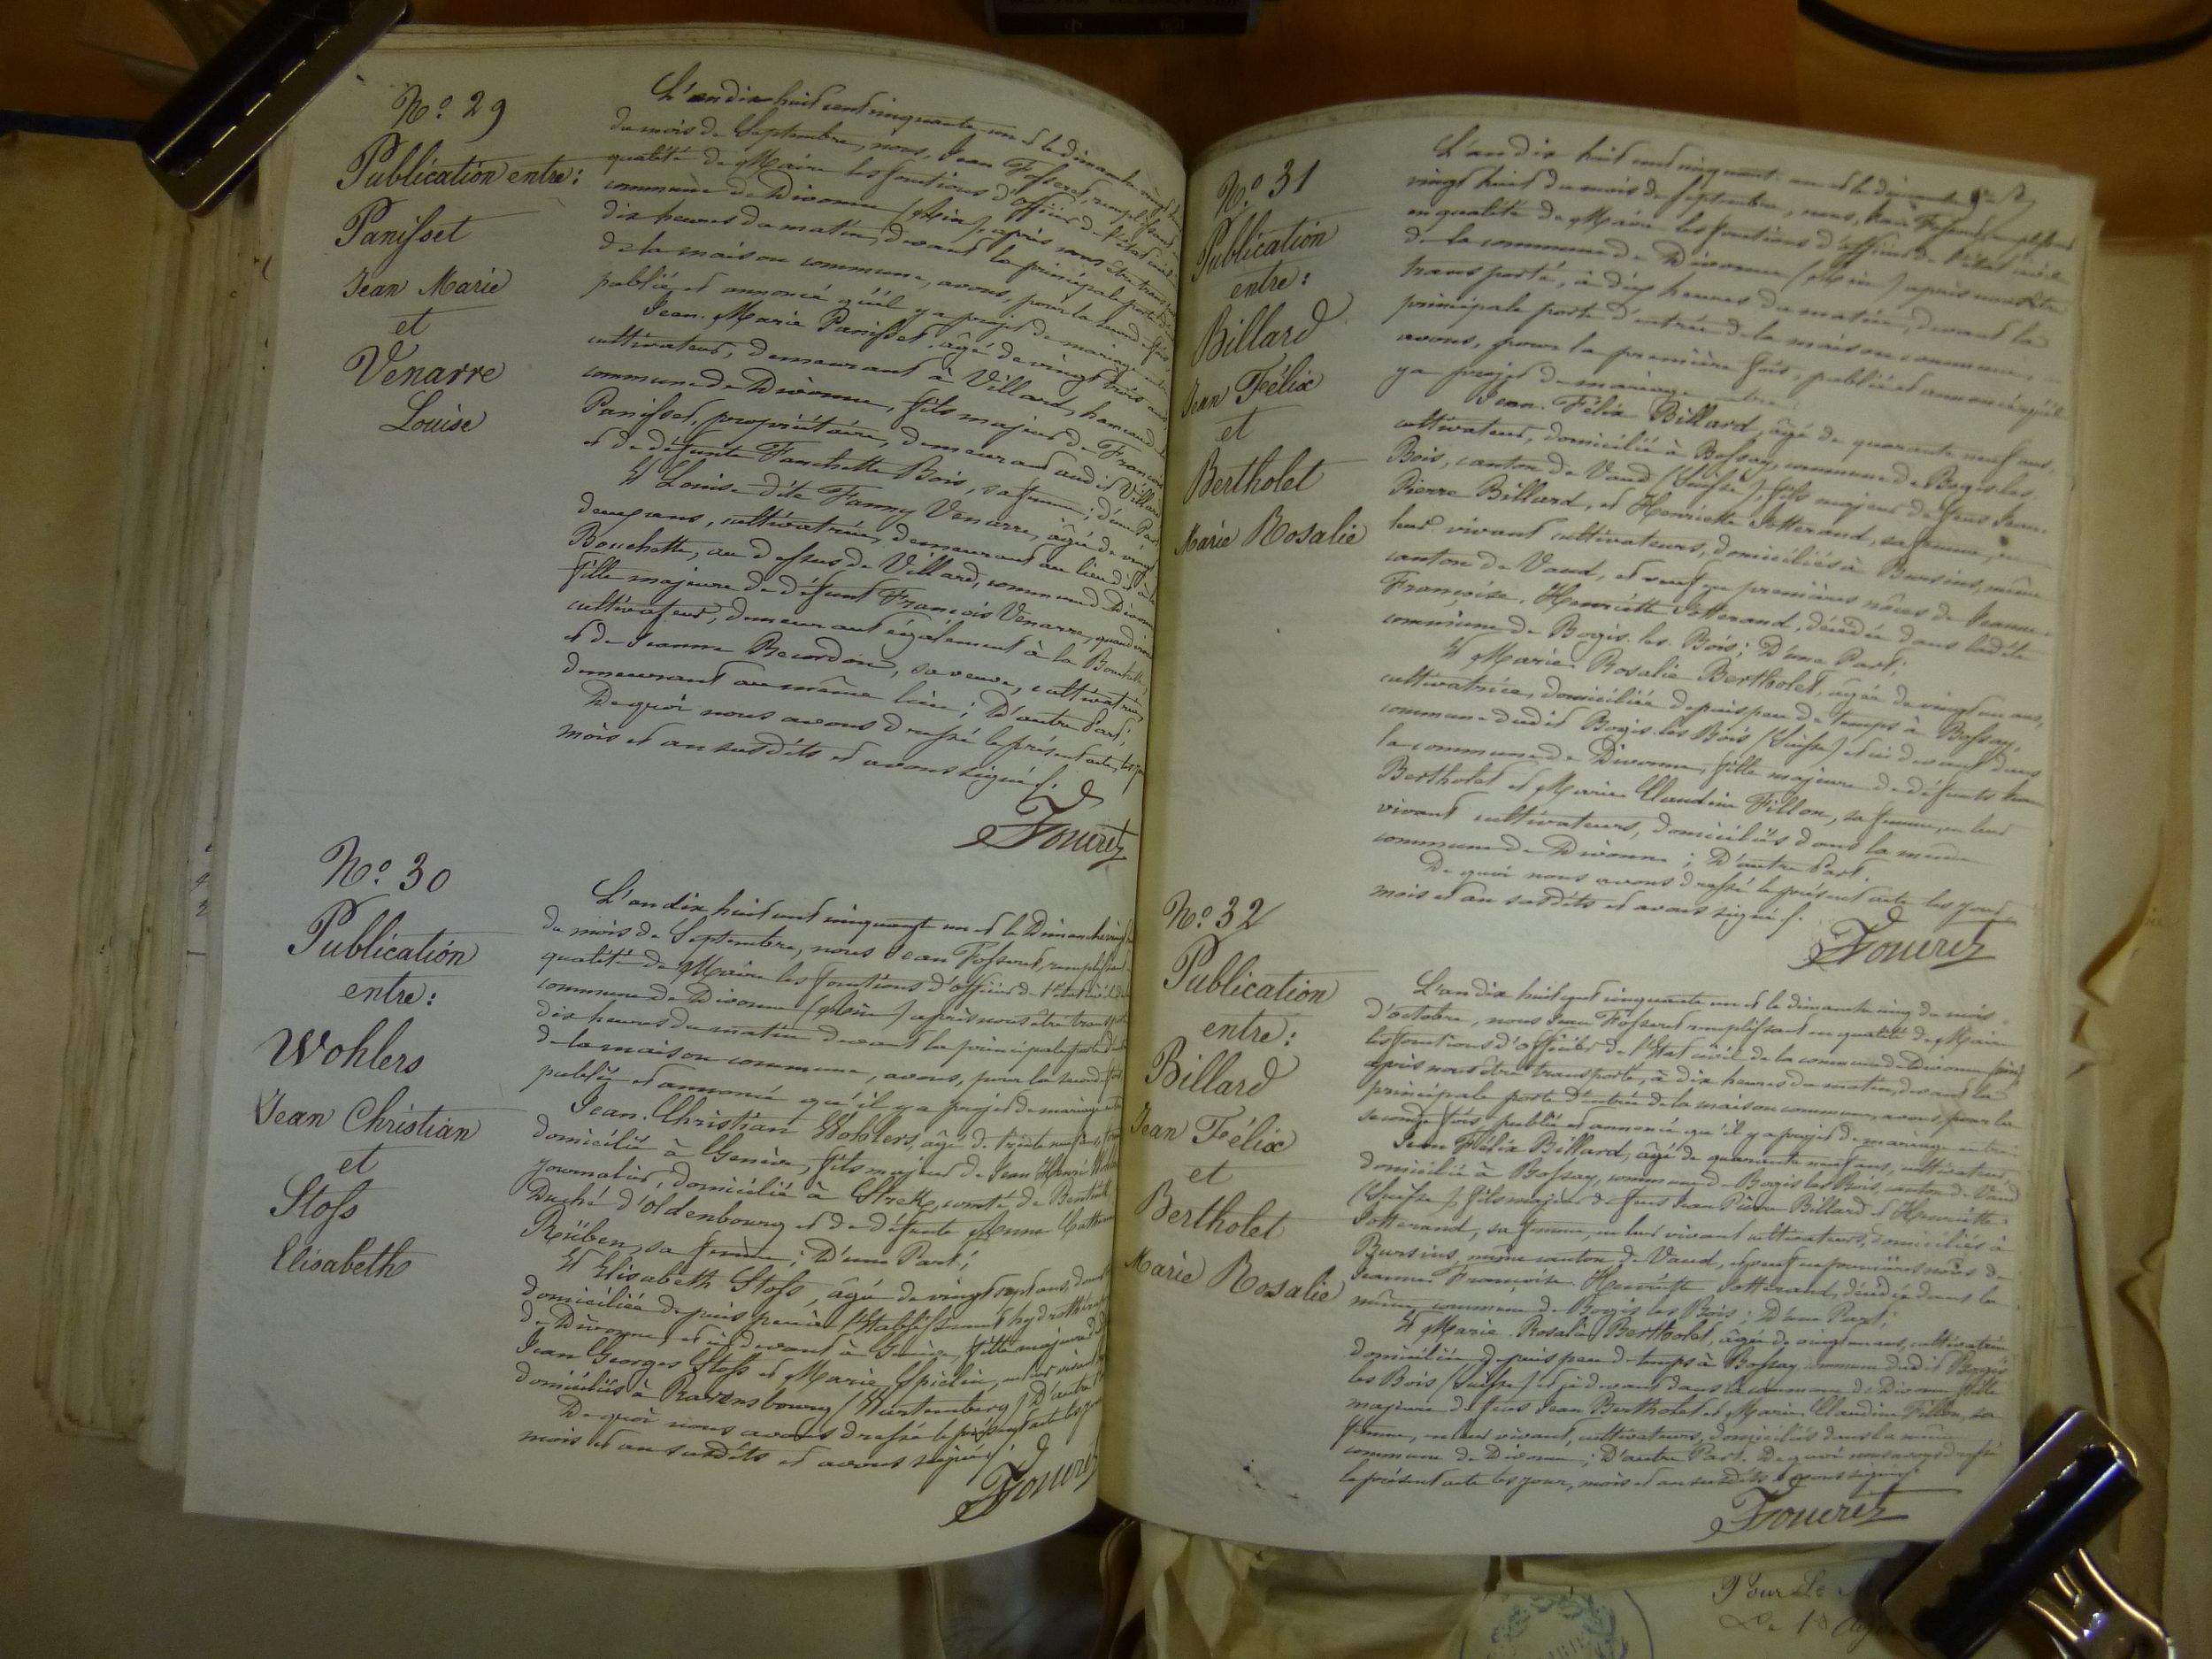 Nº 29
Publication entre:
Panisset
Jean Marie
et
Venarre
Louise
L'an dix huit cent cinquante un et le dimanche vingt
du mois de Septembre, nous, Jean Fosseret, remplissant en
qualité de Maire les fonctions d'officier de l'état civil
commune de Divonne (Ain) après nous être transporté
dix heures du matin, devant la principale porte
de la maison commune, avons, pour la seconde fois,
publié et annoncé qu'il y a projet de mariage entre
Jean-Marie Panisset, âgé de vingt trois ans,
cultivateur, demeurant à Villard, hameau de
commune de Divonne, fils majeur de François
Panisset, propriétaire, demeurant audit Villard
et de défunte Fanchette Bois, sa femme; d'une Part
Et Louise dite Fanny Venarre, âgée de vingt
deux ans, cultivatrice, demeurant au lieu dit à la
Bouchette, au dessus de Villard, commune de Divonne
fille majeure de défunt François Venarre, quand vivait
cultivateur, demeurant également à la Bouchette,
et de Jeanne Recordon, sa veuve, cultivatrice,
demeurant au même lieu; D'autre Part;
De quoi nous avons dressé le présent acte, les jour
mois et an susdits et avons signé.
Fouret
Nº 30
Publication
entre:
Wohlers
Jean Christian
et
Stoss
Elisabeth
L'an dix huit cent cinquante un et le Dimanche vingt
du mois de Septembre, nous Jean Fosseret, remplissant
qualité de Maire les fonctions d'officier de l'état civil de
commune de Divonne (Ain) après nous être transporté
dix heures du matin devant la principale porte
de la maison commune, avons, pour la seconde fois
publié et annoncé qu'il y a projet de mariage entre
Jean-Christian Wohlers, âgé de trente neuf ans,
domicilié à Genève, fils majeur de Jean Henri
journalier, domicilié à Strekk, comté de
Duché d'Oldenbourg et de défunte Anne Catherine
Rüben, sa femme; D'une Part;
Et Elisabeth Stoss, âgée de vingt sept ans,
domiciliée depuis peu à l'Etablissement hydrothérapique
de Divonne, et ci devant à Genève, fille majeure de
Jean Georges Stoss et Marie Spielin, en leur vivant
domiciliés à Ravensbourg (Wurtemberg) D'autre
De quoi nous avons dressé le présent acte les jour
mois et an susdits et avons signé.
Fouret
Nº 31
Publication
entre:
Billard
Jean Félix
et
Bertholet
Marie Rosalie
L'an dix huit cent cinquante un et le dimanche
vingt huit du mois de Septembre, nous, Jean Fosseret remplissant
en qualité de Maire les fonctions d'officier de l'état civil
de la commune de Divonne (Ain) après nous être
transporté, à dix heures du matin, devant la
principale porte d'entrée de la maison commune
avons, pour la première fois, publié et annoncé qu'il
y a projet de mariage entre
Jean-Félix Billard, âgé de quarante neuf ans,
cultivateur, domicilié à Bossay, commune de Bogis-les-
Bois, canton de Vaud (Suisse), fils majeur de feus Jean-
Pierre Billard, et Henriette Jotterand, sa femme, en
leur vivant cultivateurs, domiciliés à Bursins, même
canton de Vaud, et veuf en premières nôces de Jeanne
Françoise-Henriette Jotterand, décédée dans ladite
commune de Bogis-les-Bois; D'une Part;
Et Marie-Rosalie Bertholet, âgée de vingt un ans,
cultivatrice, domiciliée depuis peu de temps à Bossay,
commune dudit Bogis-les-Bois (Suisse) et ci devant dans
la commune de Divonne, fille majeure de défunts Jean
Bertholet et Marie Claudine Fillon, sa femme, en leur
vivant cultivateurs, domiciliés dans la même
commune de Divonne; D'autre Part.
De quoi nous avons dressé le présent acte les jour
mois et an susdits et avons signé.
Fouret
Nº 32
Publication
entre:
Billard
Jean Félix
et
Bertholet
Marie Rosalie
L'an dix huit cent cinquante un et le dimanche cinq du mois
d'octobre, nous Jean Fosseret remplissant en qualité de Maire
les fonctions d'officier de l'Etat civil de la commune de Divonne (Ain)
après nous être transporté, à dix heures du matin, devant la
principale porte d'entrée de la maison commune, avons, pour la
seconde fois, publié et annoncé qu'il y a projet de mariage entre
Jean Félix Billard, âgé de quarante neuf ans, cultivateur,
domicilié à Bossay, commune de Bogis les Bois, canton de Vaud
(Suisse) fils majeur de feus Jean Pierre Billard et Henriette
Jotterand, sa femme, en leur vivant cultivateurs, domiciliés à
Bursins, même canton de Vaud, et veuf en premières nôces de
Jeanne Françoise-Henriette Jotterand, décédée dans la
même commune de Bogis les Bois; D'une Part;
Et Marie-Rosalie Bertholet, âgée de vingt un ans, cultivatrice
domiciliée depuis peu de temps à Bossay, commune dudit Bogis
les Bois (Suisse) et ci devant dans la commune de Divonne fille
majeure de feus Jean Bertholet et Marie Claudine Fillon, sa
femme, en leur vivant, cultivateurs, domiciliés dans la même
commune de Divonne; D'autre Part. De quoi nous avons dressé
le présent acte les jour, mois et an susdits et avons signé.
Fouret
Pour Le
Le 18